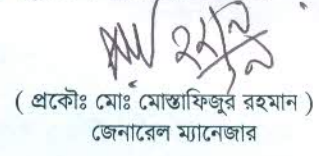 ( প্রকৌঃ মোঃ মোস্তাফিজুর রহমান )
জেনারেল ম্যানেজার